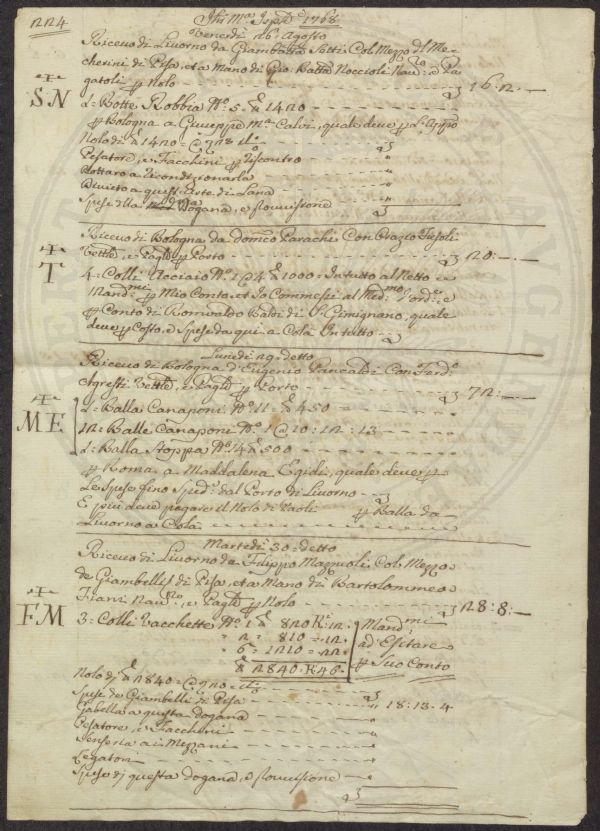 224
Jhs Mª 1768
Venerdi 26: Agosto
Riceuo di Liuorno da Giambatta Sotti Col Mezzo dl Me-
cherini di Pisa, et a Mano di Gio: Batta Noccioli Nau.ro, e Pa-
gatoli p Nolo - - - 16.2.-
S.N
1: Botte Robbia N.o 5. 1420
p Bologna a Giuseppe M.a Calvi, quale deve p
Nolo di 1420 =
Pesatore, e Facchini p Riscontro
Bottaro a Ricondizionarla
Diuieto a quest'Arte di Lana
Spese dlla Dogana, e Prouuisione
T
Riceuo di Bologna da Domco Parachi Con Orazio Fiesoli
Vettle, e Pagli p Porto - - - 120:-.-
4: Colli Acciaio N.o 1@4 1000= In tutto al Netto e
Mandmi p Mio Conto, et Io Commessi al Medmo
p Conto di Romualdo Baldi di S. Gimignano, quale
deve p Costo, e Spese da qui a Colà In tutto
Lunedi 29: detto
Riceuo di Bologna d'Eugenio Pancaldi Con Ferd.o
Agresti Vettle, e Pagli p Porto - - - 72:-.-
M E
1: Balla Canaponi N.o 11: 450
12: Balle Canaponi N.o 1@10: 12: 13
1: Balla Stoppa N.o 14 500
p Roma a Maddalena Egidi, quale deve p
Le Spese fino Sped.o dal Porto di Liuorno
E più deve pagare il Nolo di Paoli p Balla da
Liuorno a Colà
Martedi 30: detto
Riceuo di Liuorno da Filippo Mazzuoli Col Mezzo
de Giambelli di Pisa, et a Mano di Bartolommeo
Fiarvi Nau.ro, e Pagli p Nolo - - - 28:8:-
F.M
3: Colli Vacchette N.o 1 820 R: 12
" 2 " 810 " 12
" 6 " 1210 " 22
2840. R: 46
Mandmi
ad Esitare
p Suo Conto
Nolo di 2840 =
Spese de Giambelli di Pisa - - - 18:13.4
Gabella a questa Dogana
Pesatore, e Facchini
Senseria a i Mezzani
Legatori
Spese di questa Dogana, e Prouuisione